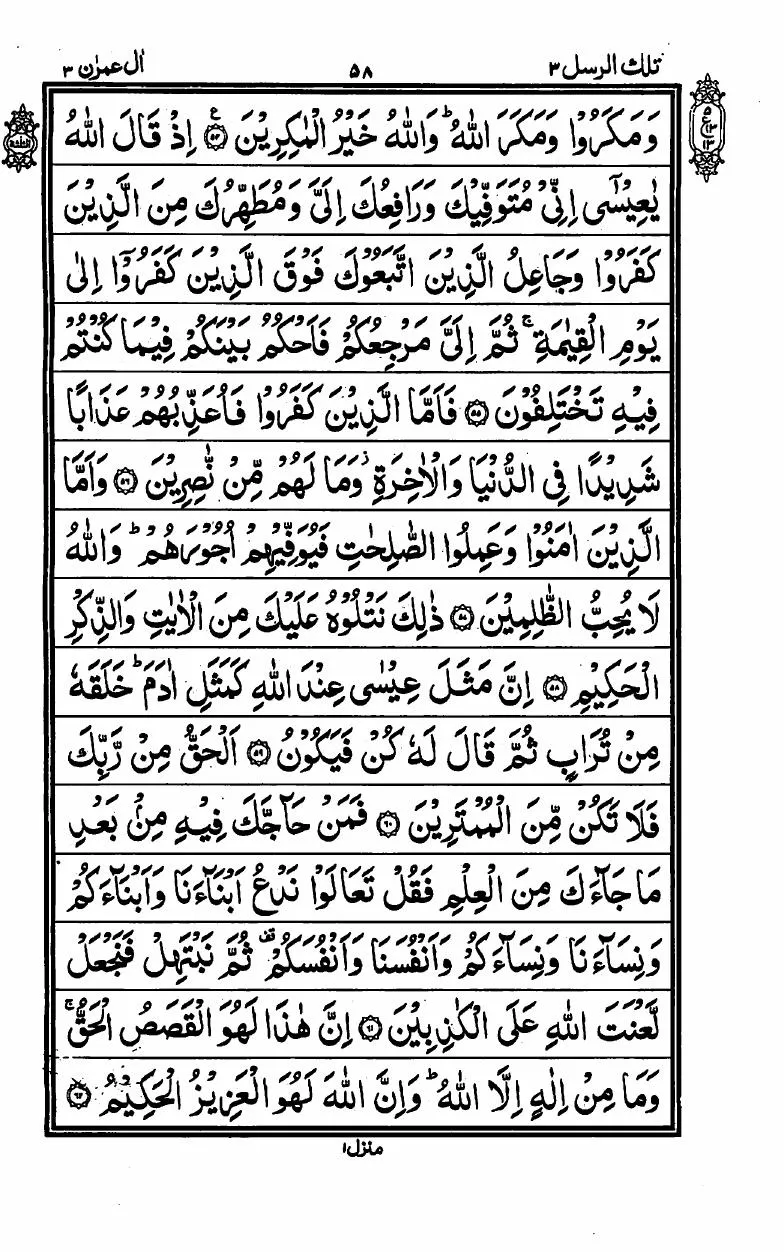 تلك الرسل ٣ ٥٨ اٰل عمرٰن ٣
وَمَكَرُوْا وَمَكَرَ اللّٰهُ ؕ وَاللّٰهُ خَيْرُ الْمٰكِرِيْنَ ﴿٥٤﴾ ع اِذْ قَالَ اللّٰهُ
يٰعِيْسٰۤى اِنِّىْ مُتَوَفِّيْكَ وَرَافِعُكَ اِلَىَّ وَمُطَهِّرُكَ مِنَ الَّذِيْنَ
كَفَرُوْا وَجَاعِلُ الَّذِيْنَ اتَّبَعُوْكَ فَوْقَ الَّذِيْنَ كَفَرُوْۤا اِلٰى
يَوْمِ الْقِيٰمَةِ ۚ ثُمَّ اِلَىَّ مَرْجِعُكُمْ فَاَحْكُمُ بَيْنَكُمْ فِيْمَا كُنْتُمْ
فِيْهِ تَخْتَلِفُوْنَ ﴿٥٥﴾ فَاَمَّا الَّذِيْنَ كَفَرُوْا فَاُعَذِّبُهُمْ عَذَابًا
شَدِيْدًا فِى الدُّنْيَا وَالْاٰخِرَةِ ؗ وَمَا لَهُمْ مِّنْ نّٰصِرِيْنَ ﴿٥٦﴾ وَاَمَّا
الَّذِيْنَ اٰمَنُوْا وَعَمِلُوا الصّٰلِحٰتِ فَيُوَفِّيْهِمْ اُجُوْرَهُمْ ؕ وَاللّٰهُ
لَا يُحِبُّ الظّٰلِمِيْنَ ﴿٥٧﴾ ذٰلِكَ نَتْلُوْهُ عَلَيْكَ مِنَ الْاٰيٰتِ وَالذِّكْرِ
الْحَكِيْمِ ﴿٥٨﴾ اِنَّ مَثَلَ عِيْسٰى عِنْدَ اللّٰهِ كَمَثَلِ اٰدَمَ ؕ خَلَقَهٗ
مِنْ تُرَابٍ ثُمَّ قَالَ لَهٗ كُنْ فَيَكُوْنُ ﴿٥٩﴾ اَلْحَقُّ مِنْ رَّبِّكَ
فَلَا تَكُنْ مِّنَ الْمُمْتَرِيْنَ ﴿٦٠﴾ فَمَنْ حَآجَّكَ فِيْهِ مِنْۢ بَعْدِ
مَا جَآءَكَ مِنَ الْعِلْمِ فَقُلْ تَعَالَوْا نَدْعُ اَبْنَآءَنَا وَاَبْنَآءَكُمْ
وَنِسَآءَنَا وَنِسَآءَكُمْ وَاَنْفُسَنَا وَاَنْفُسَكُمْ ۟ ثُمَّ نَبْتَهِلْ فَنَجْعَلْ
لَّعْنَتَ اللّٰهِ عَلَى الْكٰذِبِيْنَ ﴿٦١﴾ اِنَّ هٰذَا لَهُوَ الْقَصَصُ الْحَقُّ ۚ
وَمَا مِنْ اِلٰهٍ اِلَّا اللّٰهُ ؕ وَاِنَّ اللّٰهَ لَهُوَ الْعَزِيْزُ الْحَكِيْمُ ﴿٦٢﴾
منزل ١